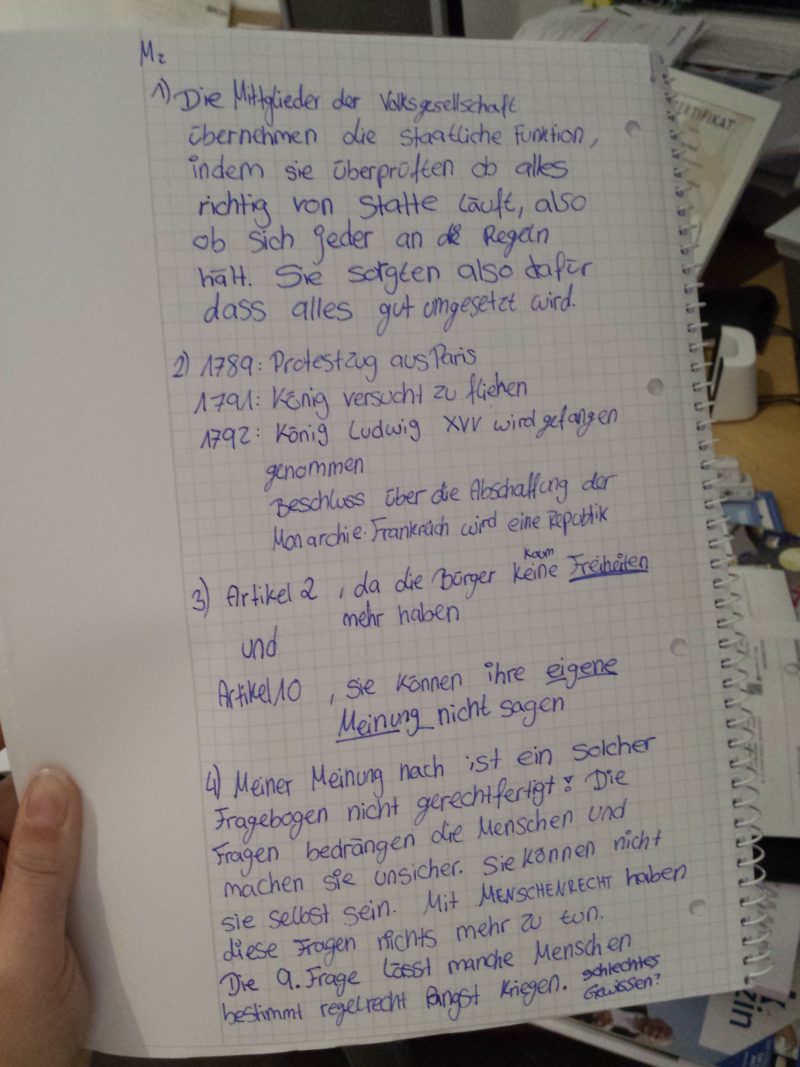 M2
1) Die Mittglieder der Volksgesellschaft
übernehmen die staatliche Funktion,
indem sie überprüften ob alles
richtig von statte läuft, also
ob sich jeder an die Regeln
hält. Sie sorgten also dafür
dass alles gut umgesetzt wird.
2) 1789: Protestzug aus Paris
1791: König versucht zu fliehen
1792: König Ludwig XVI wird gefangen
genommen
Beschluss über die Abschaffung der
Monarchie. Frankreich wird eine Republik
3) Artikel 2, da die Bürger kaum keine Freiheiten
mehr haben
und
Artikel 10, sie können ihre eigene
Meinung nicht sagen
4) Meiner Meinung nach ist ein solcher
Fragebogen nicht gerechtfertigt: Die
Fragen bedrängen die Menschen und
machen sie unsicher. Sie können nicht
sie selbst sein. Mit MENSCHENRECHT haben
diese Fragen nichts mehr zu tun.
Die 9. Frage lässt manche Menschen
bestimmt regelrecht Angst kriegen. schlechtes
Gewissen?
ZERTIFIKAT